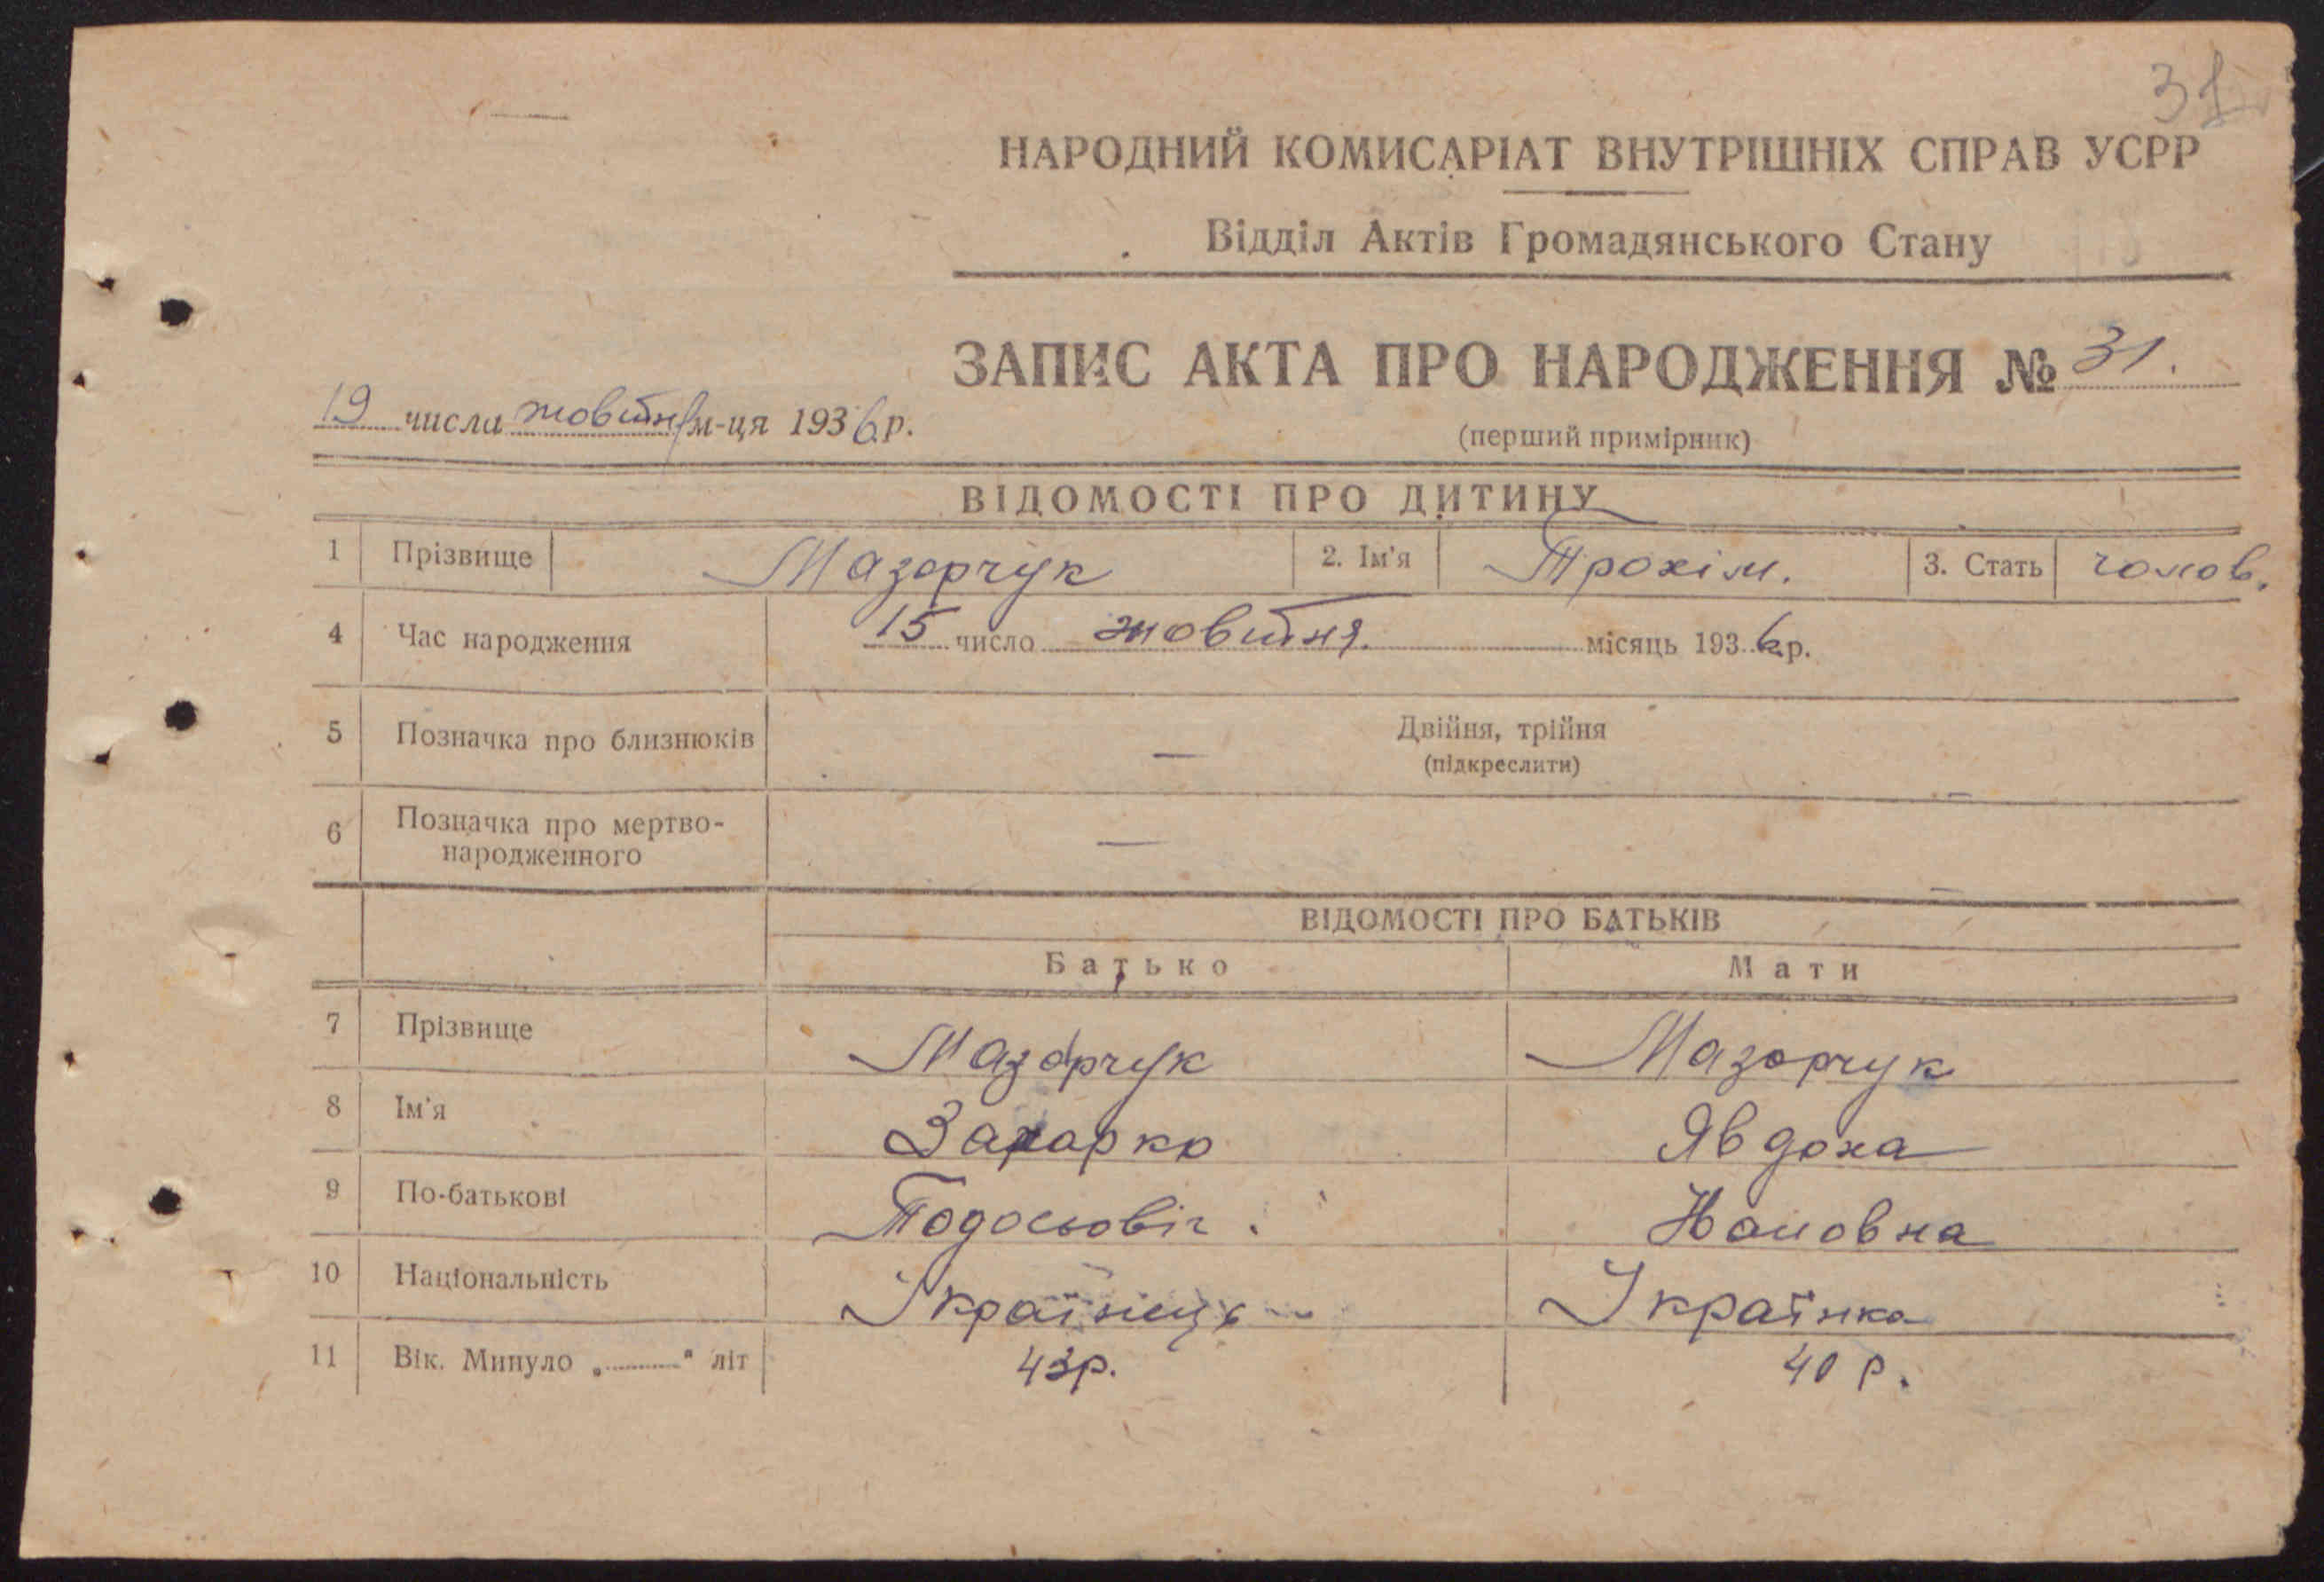 31
НАРОДНИЙ КОМИСАРІАТ ВНУТРІШНІХ СПРАВ УСРР
Відділ Актів Громадянського Стану
ЗАПИС АКТА ПРО НАРОДЖЕННЯ № 31.
19 числа жовтня м-ця 1936 р.
(перший примірник)
ВІДОМОСТІ ПРО ДИТИНУ
1 Прізвище Мазорчук 2. Ім'я Трохім. 3. Стать чолов.
4 Час народження 15 число жовтня. місяць 1936 р.
5 Позначка про близнюків — Двійня, трійня
(підкреслити)
6 Позначка про мертво-
народженного —
ВІДОМОСТІ ПРО БАТЬКІВ
Батько Мати
7 Прізвище Мазорчук Мазорчук
8 Ім'я Захарко Явдоха
9 По-батькові Тодосьовіч
10 Національність Українець Українка
11 Вік. Минуло „ " літ 43р. 40 р.